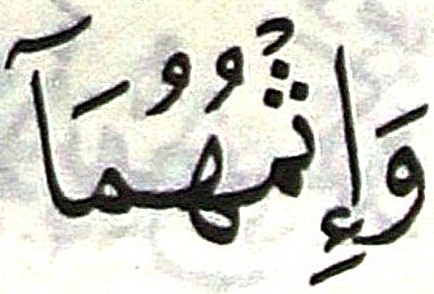 وَإِثْمُهُمَآ